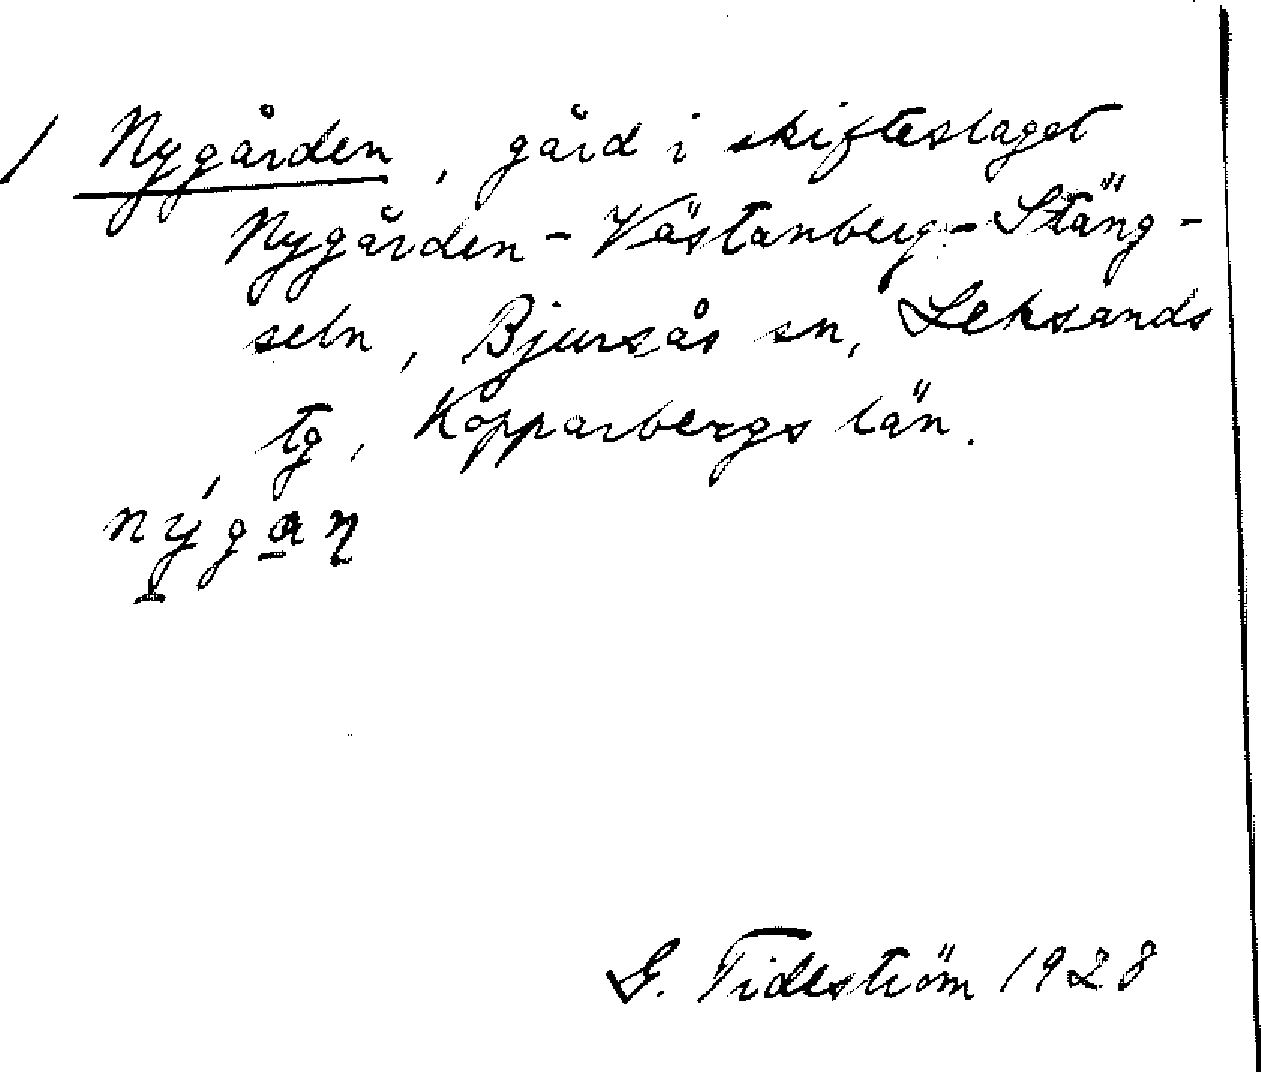 / Nygården, gård i skifteslaget
Nygården-Västanberg-Stäng-
seln, Bjursås sn, Leksands
tg, Kopparbergs län.
G. Tideström 1928